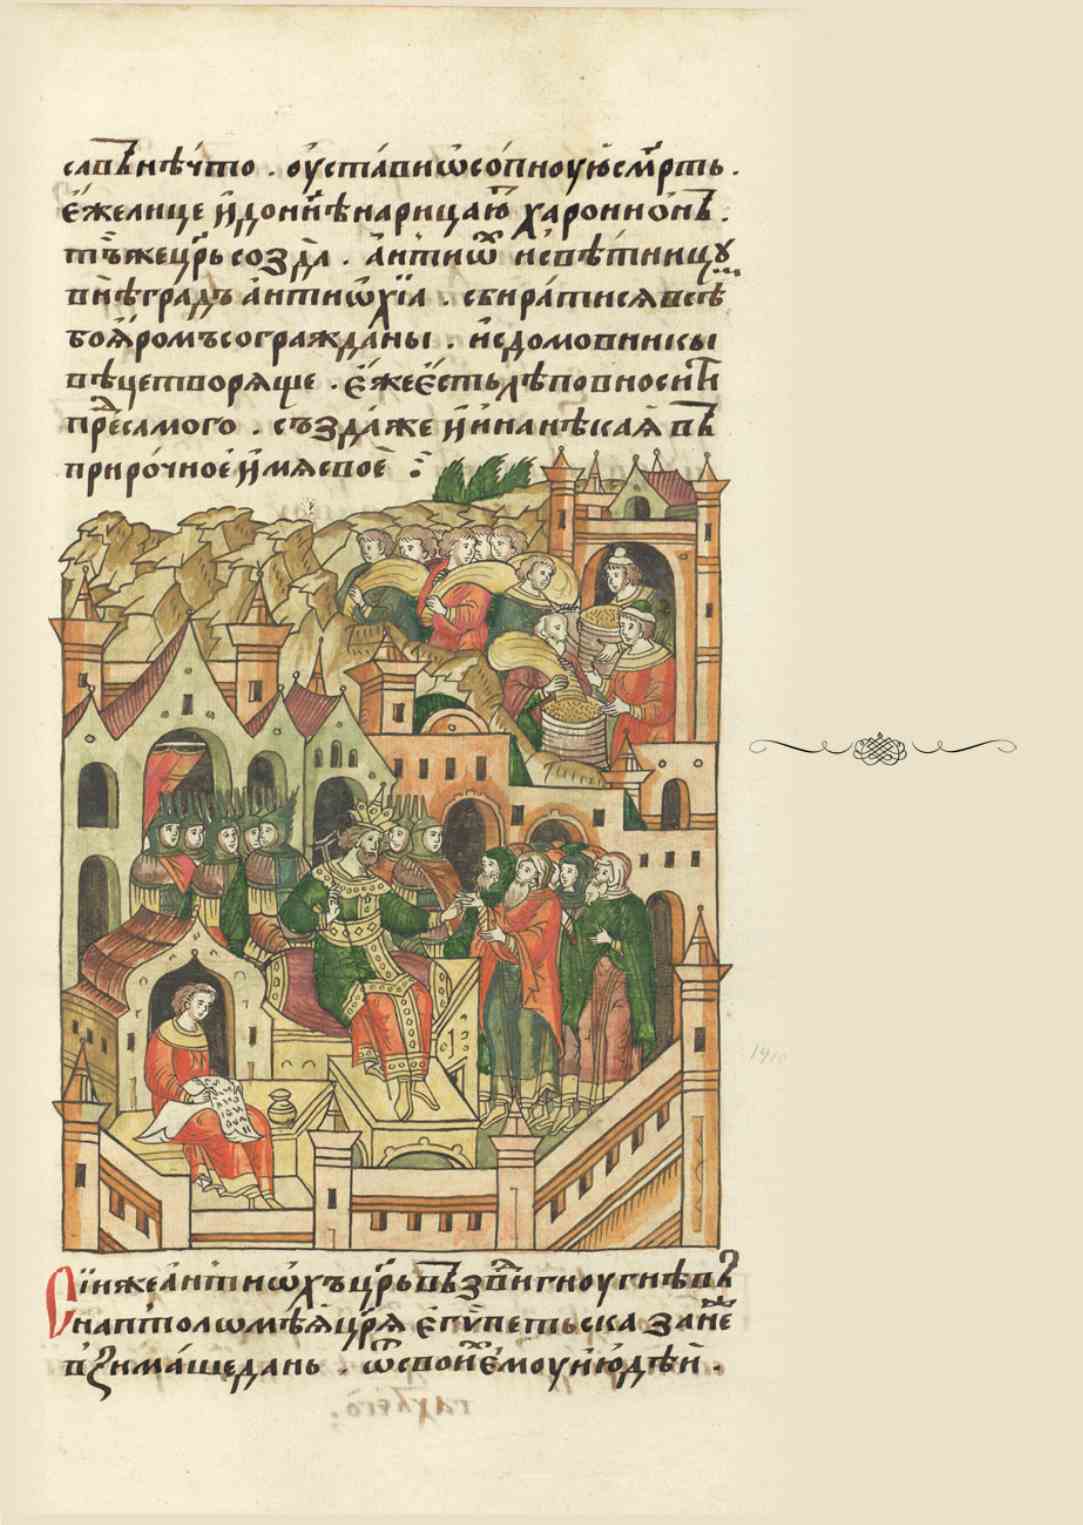 сапв нѣчто . оустави ѿсопноую смрть .
еже лице и до ннѣ нарицаю харонионъ .
тъ же црь созда . антиѡх и свѣтницу
внѣ градъ антиѡхїа . сбиратися всѣ
бояромъ со гражданы . и с домовники
вѣце творяще . еже есть лѣпо вносити
пре самого . създа же и ина нѣкая въ
прирочное имя свое
Сїи же антиѡхъ црь въздвигноу гнѣвъ
на птолѡмѣя цря египетьска зане
взимаше дань . ѿ своих емоу июдѣи .